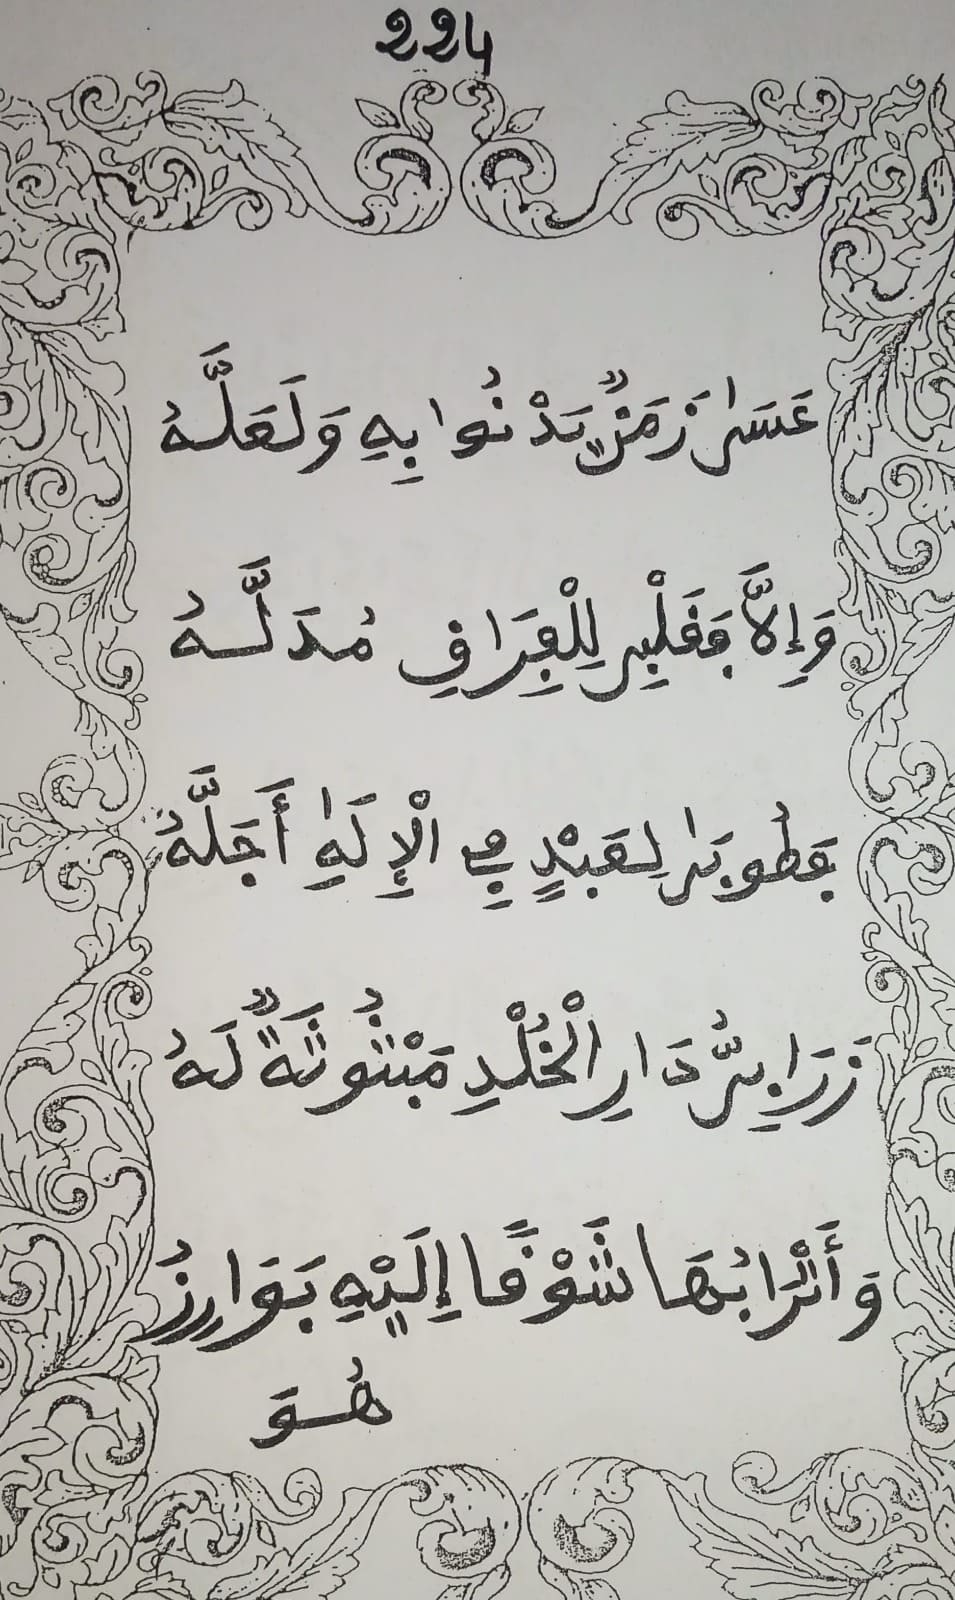 224
عَسَىٰ زَمَنٌ يَدْنُوا بِهِ وَلَعَلَّهُ
وَإِلَّا فَقَلْبِي لِلْفِرَاقِ مُدَلَّهُ
فَطُوبَىٰ لِعَبْدٍ فِي الْإِلَٰهِ أَجَلَّهُ
زَرَابِيُّ دَارِ الْخُلْدِ مَبْثُوثَةٌ لَهُ
وَأَتْرَابُهَا شَوْقًا إِلَيْهِ بَوَارِزُ
هُوَ